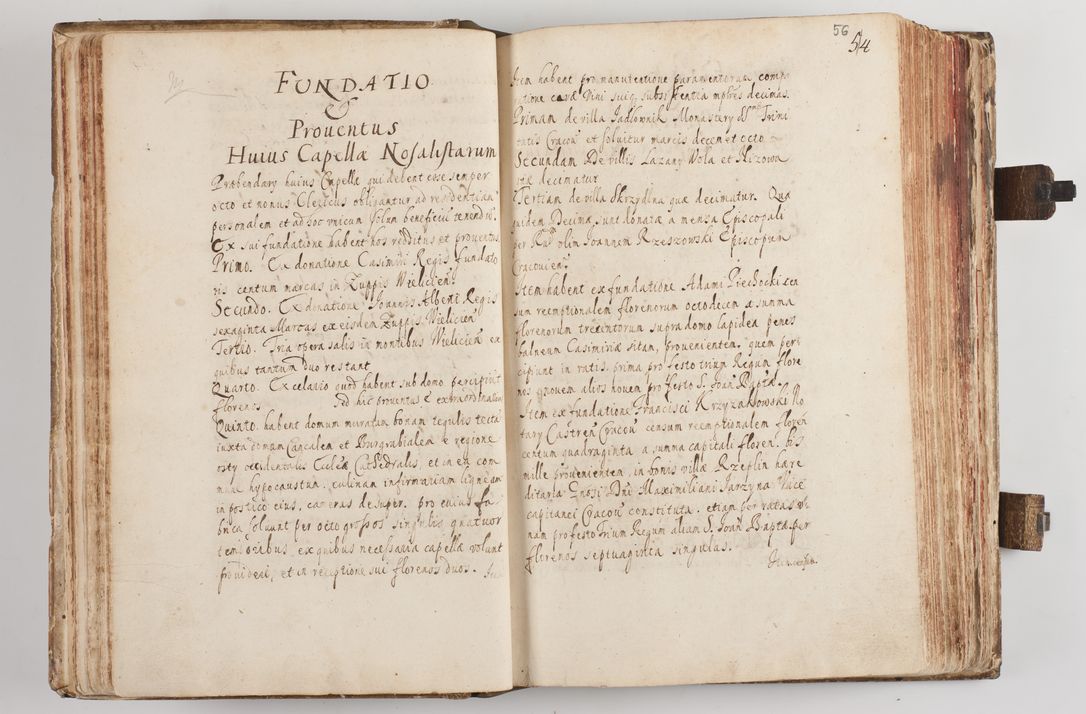 FUNDATIO
&
Prouentus
Huius Capellæ Rosalistarum
Præbendary huius Capellæ qui debent esse semper
octo et nonus Clericus obligantur ad residentiam
personalem et ad hoc vnicum solum beneficiū tenendū.
Ex sui fundatione habent hos redditus et prouentus.
Primo. Ex donatione Casimiri Regis fundato
ris centum marcas in Zuppis Wielicien̄.
Secundo. Ex donatione Joannis Alberti Regis
sexaginta Marcas ex eisdem Zuppis Wielicien̄
Tertio. Tria opera salis in montibus Wieliciēn ex
quibus tantum duo restant
Quarto. Ex celario quod habent sub domo percipiūt
florenos sed hic prouentus ē extraordinarius
Quinto. habent domum muratam bonam tegulis tectā
iuxta domum et Burgrabialem e regione
osty occidentalis Ecclæ Cathedralis, et in ea com
mune hypocaustum, culinam infirmariam ligneam
in postico eius, cameras desuper. pro cuius fa
brica soluunt per octo grossos singulis quatuor
temporibus ex quibus necessaria capellæ volunt
prouideri, et in receptione sui florenos duos.
Item
56
54
Item habent pro manutentione paramentorum compa
ratione ceræ Vini suiq; subsistentia tres decimas.
Primam de villa Jadlownik Monastery SS Trini
tatis Cracou et soluitur marcis decem et octo
Secundam De villis Lazany Wola et
decimatur
Tertiam de villa Skrzydlna quæ decimatur. Quæ
quidem Decimæ sunt donatæ a mensa Episcopali
per olim Joannem Rzeszowski Episcopum
Cracouien̄.
Item habent ex fundatione Adami Piechocki cen
sum reemptionalem florenorum octodecim a summa
florenorum trecentorum supra domo lapidea penes
balneum Casimiriæ sitam, prouenientem, quem per
cipiunt in ratis. prima pro festo trium Regum flore
nos nouem alios nouem pro festo S. Joan̄ Baptæ.
Item ex fundatione Francisci Krzyzanowski No
tary Castren̄ Cracou censum reemptionalem floren̄
centum quadraginta a summa capitali floren. bis
mille prouenientem, in bonis villæ Rzeplin hære
ditaria Gnosi Dni Maximiliani Jarzyna Vice
capitanei Cracou constituta. etiam per ratas v
nam pro festo trium Regum aliam S. Joan̄ Baptæ per
florenos septuaginta singulas.
Item censum